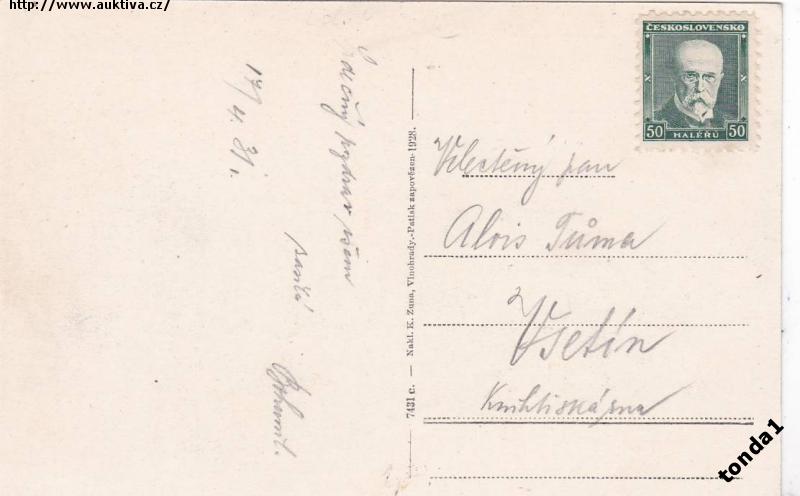 http://www.auktiva.cz/
ČESKOSLOVENSKO
50 HALÉŘŮ 50
17/4. 31.
Srdečný pozdrav všem
Bohumil.
7431 c. — Nakl. K. Zuna, Vinohrady.-Patisk zapovězen-1928.
Velectěný pan
Alois Tůma
Vsetín
Knihtiskárna
tonda1